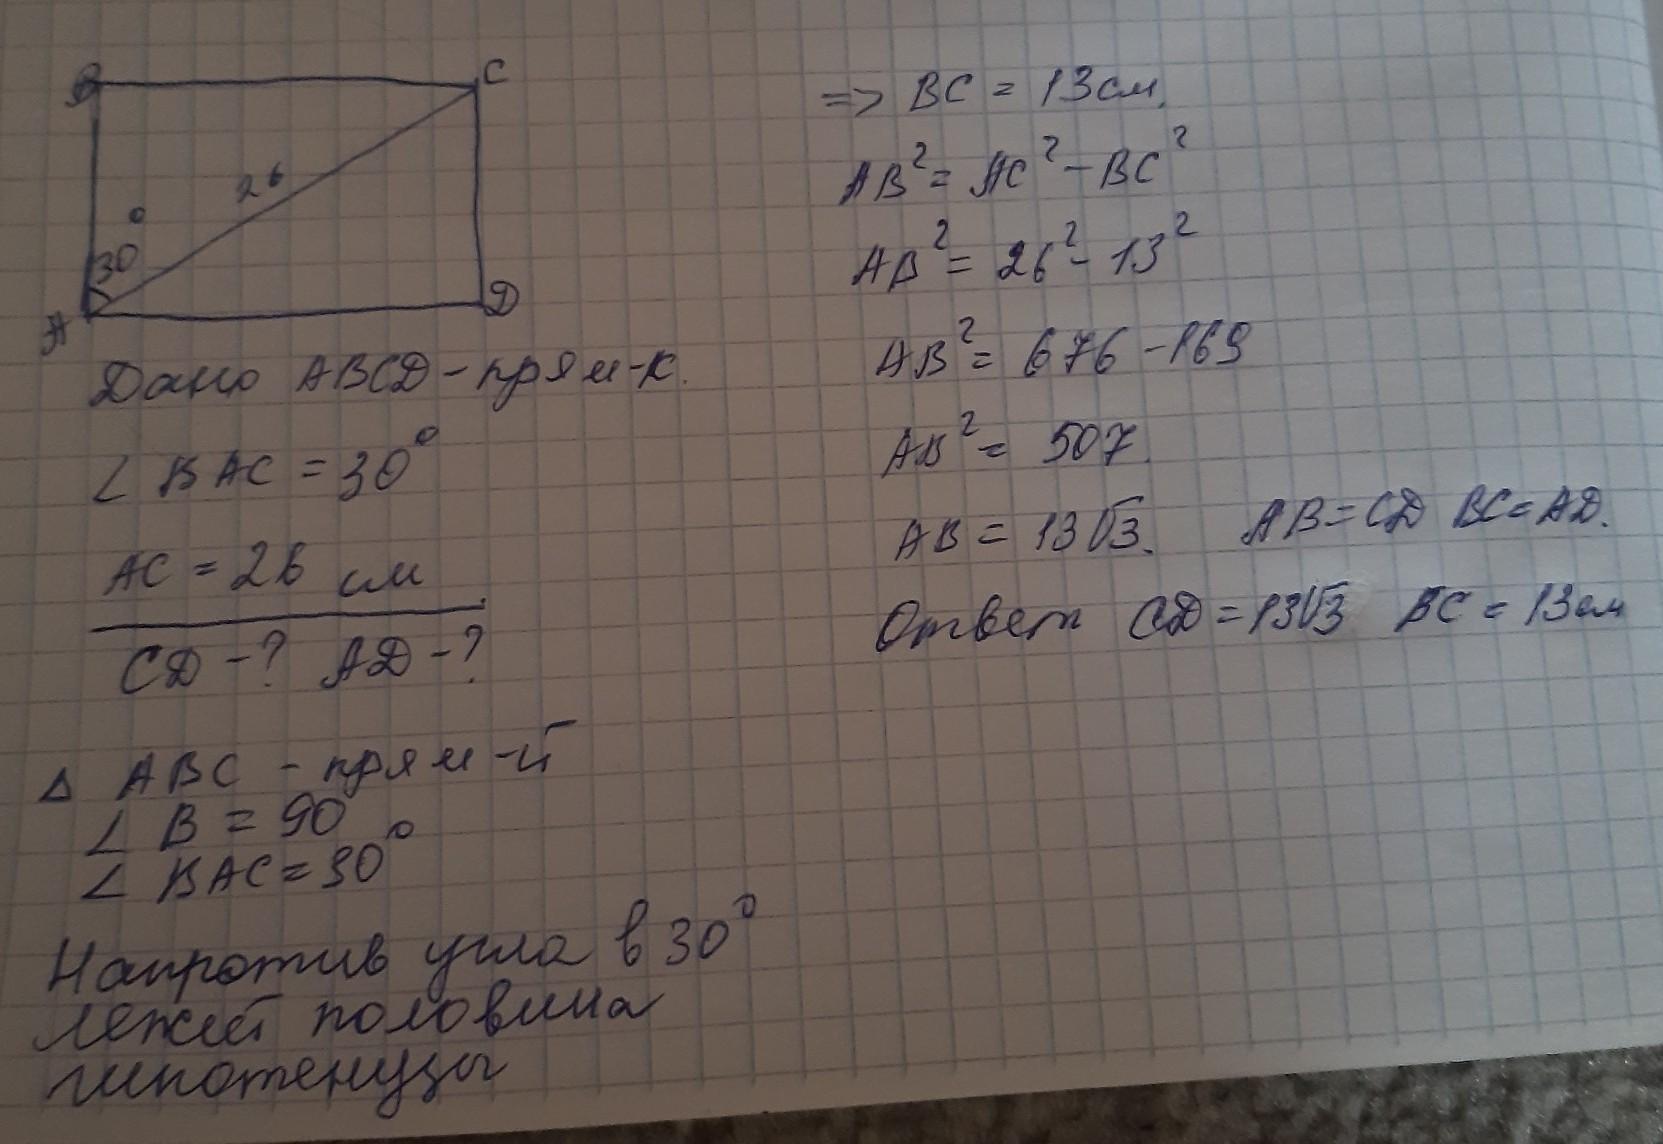 B C
26
30°
A D
Дано ABCD - прям-к.
∠ BAC = 30°
AC = 26 см
CD - ? AD - ?
Δ ABC - прям-й
∠ B = 90
∠ BAC = 30°
Напротив угла в 30°
лежит половина
гипотенузы
=> BC = 13 см.
AB² = AC² - BC²
AB² = 26² - 13²
AB² = 676 - 169
AB² = 507.
AB = 13√3. AB = CD BC = AD.
Ответ CD = 13√3 BC = 13 см